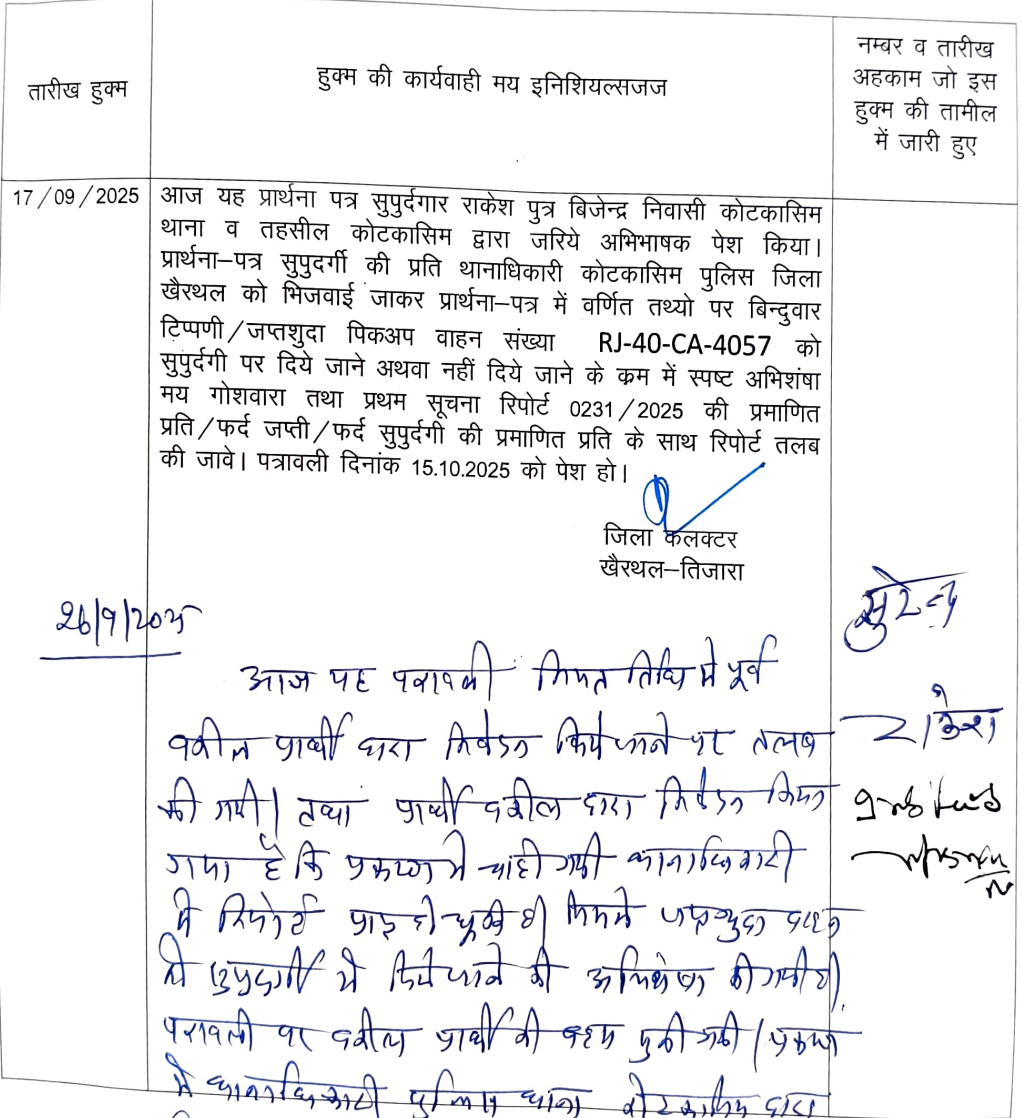 तारीख हुक्म
हुक्म की कार्यवाही मय इनिशियल्सजज
नम्बर व तारीख
अहकाम जो इस
हुक्म की तामील
में जारी हुए
17/09/2025
आज यह प्रार्थना पत्र सुपुर्दगार राकेश पुत्र बिजेन्द्र निवासी कोटकासिम
थाना व तहसील कोटकासिम द्वारा जरिये अभिभाषक पेश किया।
प्रार्थना–पत्र सुपुदर्गी की प्रति थानाधिकारी कोटकासिम पुलिस जिला
खैरथल को भिजवाई जाकर प्रार्थना–पत्र में वर्णित तथ्यो पर बिन्दुवार
टिप्पणी/जप्तशुदा पिकअप वाहन संख्या RJ-40-CA-4057 को
सुपुर्दगी पर दिये जाने अथवा नहीं दिये जाने के क्रम में स्पष्ट अभिशंषा
मय गोशवारा तथा प्रथम सूचना रिपोर्ट 0231/2025 की प्रमाणित
प्रति/फर्द जप्ती/फर्द सुपुर्दगी की प्रमाणित प्रति के साथ रिपोर्ट तलब
की जावे। पत्रावली दिनांक 15.10.2025 को पेश हो।
जिला कलक्टर
खैरथल–तिजारा
26/9/2025
आज यह पत्रावली नियत तिथि से पूर्व
वकील प्रार्थी द्वारा निवेदन किये जाने पर तलब
की गयी। तथा प्रार्थी वकील द्वारा निवेदन किया
गया है कि प्रकरण में चाही गयी थानाधिकारी
से रिपोर्ट प्राप्त हो चूकी है। जिसमे जप्तशुदा वाहन
को सुपुदर्गी पे दिये जाने की अभिशंषा की गयी है।
पत्रावली पर वकील प्रार्थी की बहस सुनी गयी। प्रकरण
मे थानाधिकारी पुलिस थाना कोटकासिम द्वारा
राकेश